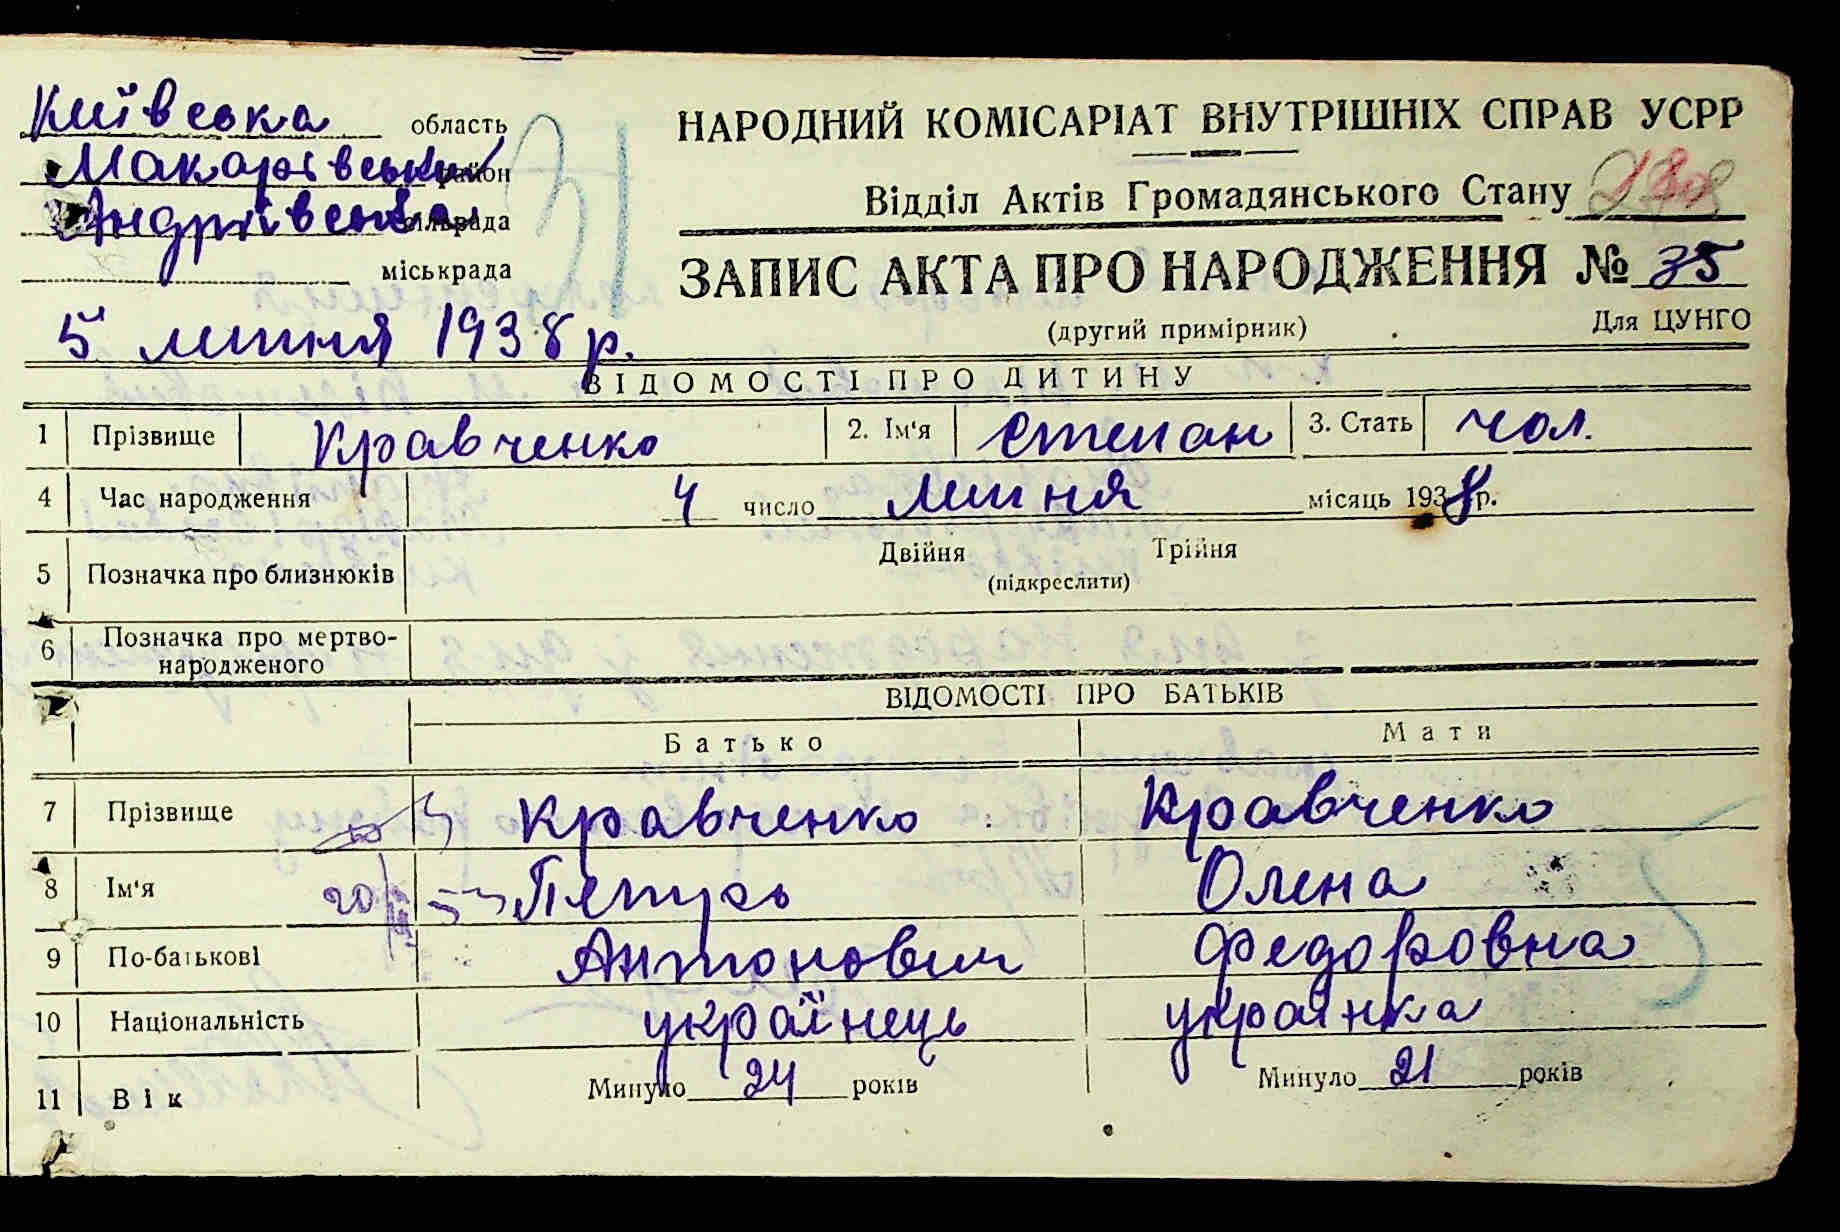 Київська область
Макарівський район
Андріївська сільрада
міськрада
5 липня 1938 р.
НАРОДНИЙ КОМІСАРІАТ ВНУТРІШНІХ СПРАВ УСРР
Відділ Актів Громадянського Стану
ЗАПИС АКТА ПРО НАРОДЖЕННЯ № 35
(другий примірник) Для ЦУНГО
ВІДОМОСТІ ПРО ДИТИНУ
1 Прізвище Кравченко 2. Ім'я Степан 3. Стать чол.
4 Час народження 4 число липня місяць 1938 р.
5 Позначка про близнюків Двійня Трійня
(підкреслити)
6 Позначка про мертво-
народженого
ВІДОМОСТІ ПРО БАТЬКІВ
Батько Мати
7 Прізвище Кравченко Кравченко
8 Ім'я Петро Олена
9 По-батькові Антонович Федоровна
10 Національність українець українка
11 Вік Минуло 24 років Минуло 21 років